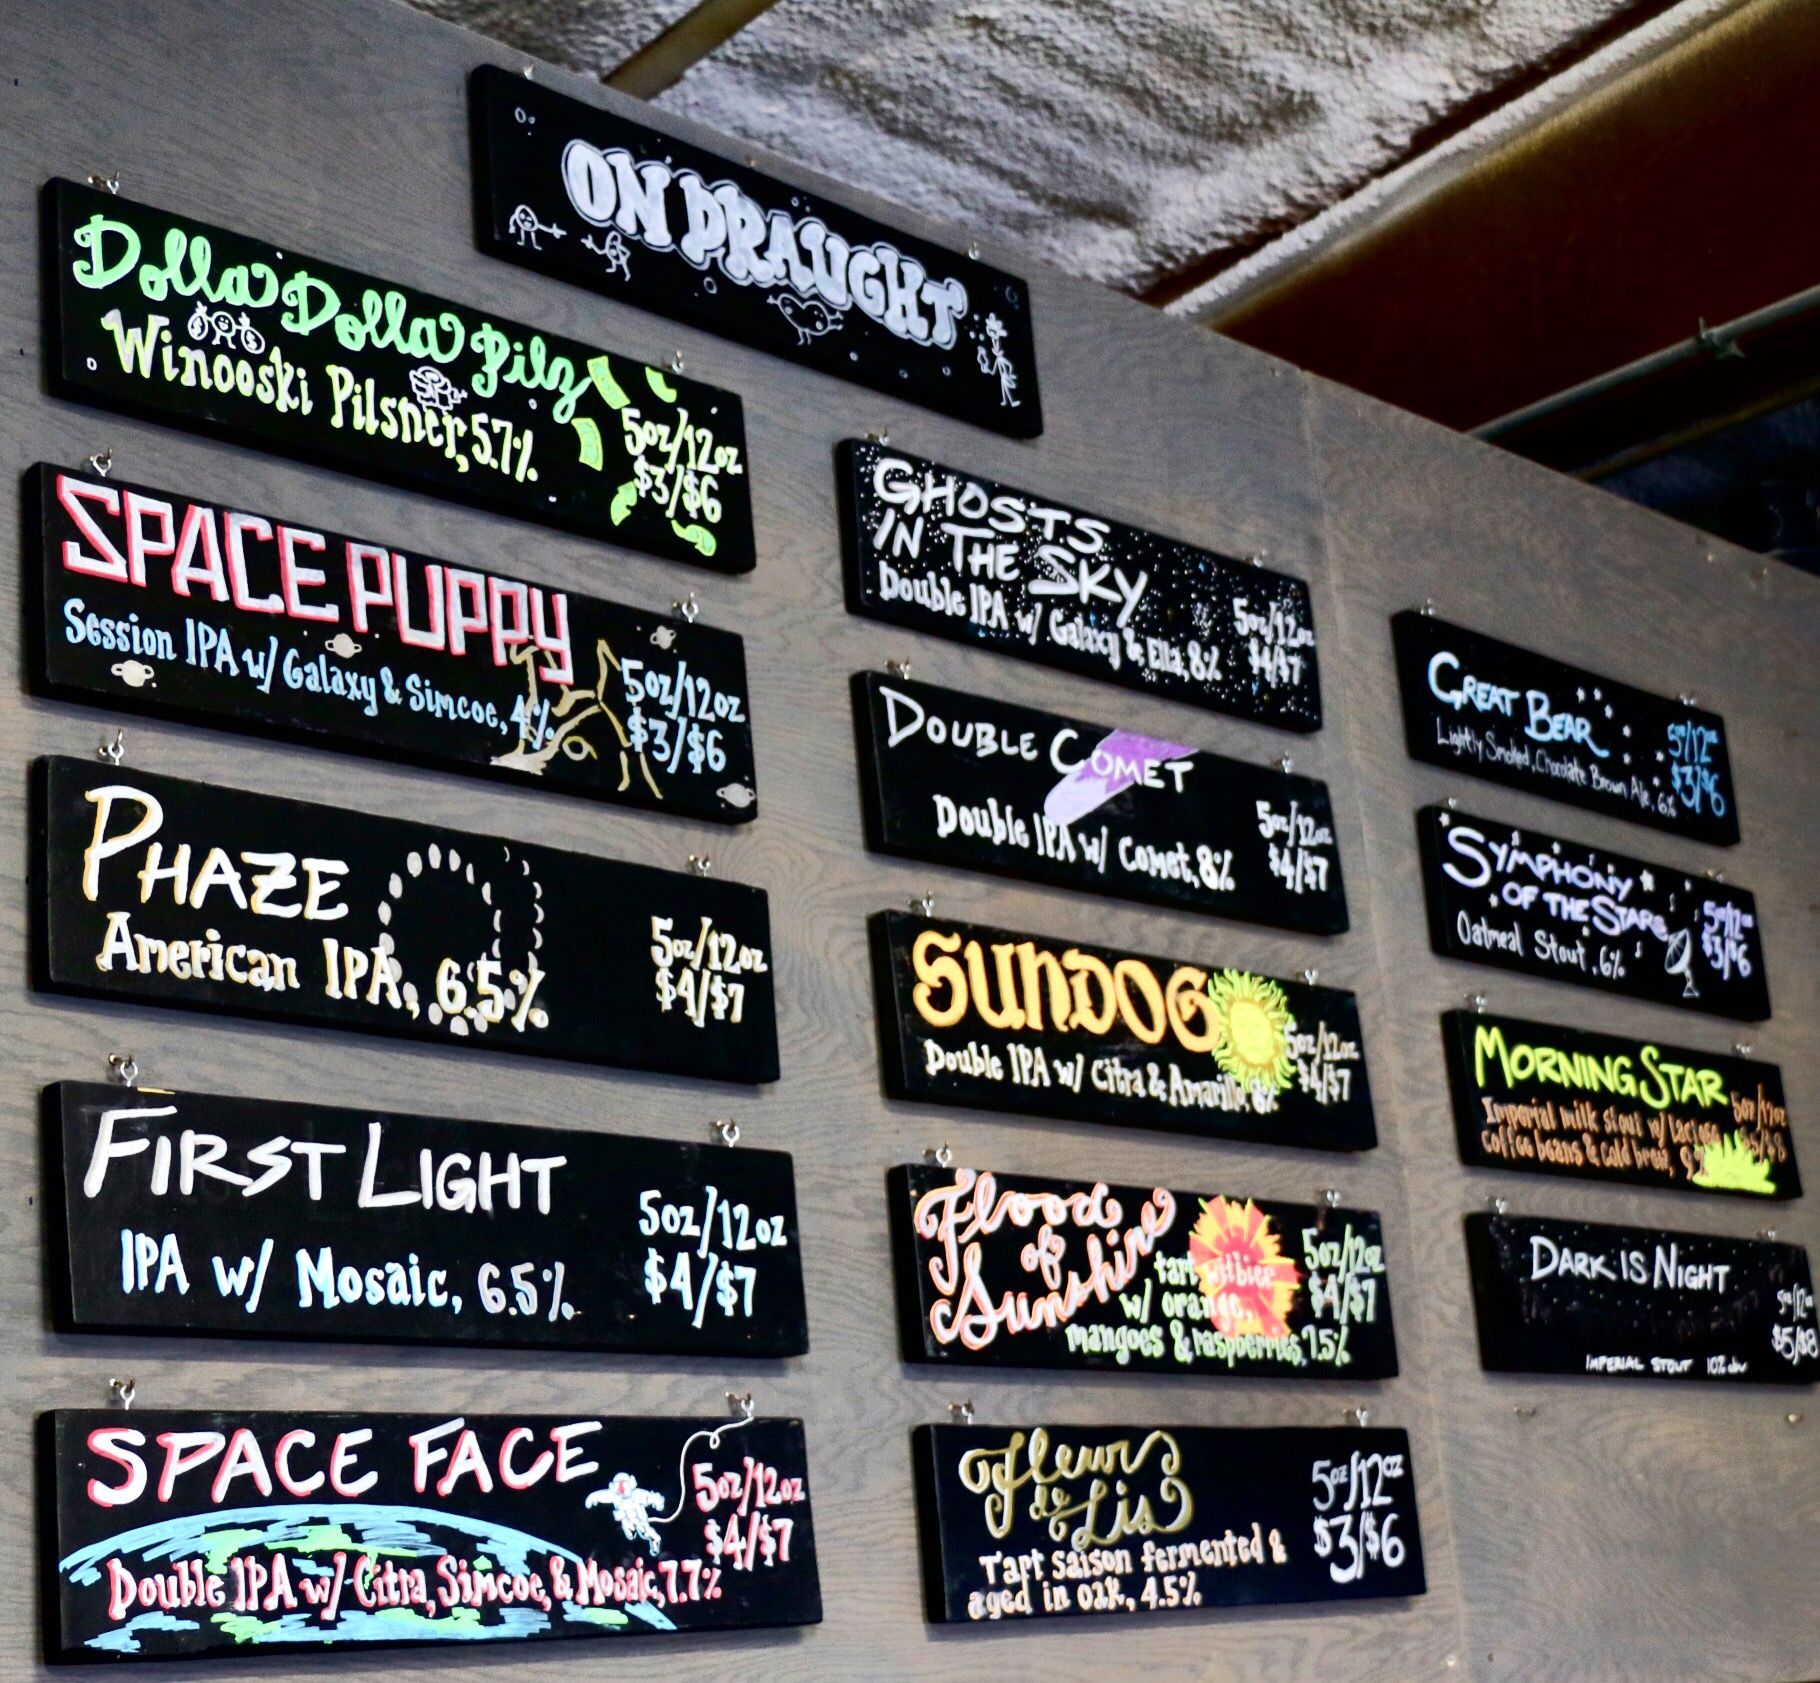 ON DRAUGHT
Dolla Dolla Pilz
Winooski Pilsner, 5.7%
5oz/12oz
$3/$6
SPACE PUPPY
Session IPA w/ Galaxy & Simcoe, 4%
5oz/12oz
$3/$6
PHAZE
American IPA, 6.5%
5oz/12oz
$4/$7
FIRST LIGHT
IPA w/ Mosaic, 6.5%
5oz/12oz
$4/$7
SPACE FACE
Double IPA w/ Citra, Simcoe, & Mosaic, 7.7%
5oz/12oz
$4/$7
GHOSTS
IN THE SKY
Double IPA w/ Galaxy & Ella, 8%
5oz/12oz
$4/$7
DOUBLE COMET
Double IPA w/ Comet, 8%
5oz/12oz
$4/$7
SUNDOG
Double IPA w/ Citra & Amarillo, 8%
5oz/12oz
$4/$7
Flood
of
Sunshine
tart witbier
w/ orange,
mangoes & raspberries, 7.5%
5oz/12oz
$4/$7
Fleur
de
Lis
Tart saison fermented &
aged in oak, 4.5%
5oz/12oz
$3/$6
GREAT BEAR
Lightly Smoked, Chocolate Brown Ale, 6%
5oz/12oz
$3/$6
SYMPHONY
OF THE STARS
Oatmeal Stout, 6%
5oz/12oz
$3/$6
MORNING STAR
Imperial milk stout w/ lactose
coffee beans & cold brew,
5oz/12oz
DARK IS NIGHT
IMPERIAL STOUT 10% abv
5oz/12oz
$5/$8